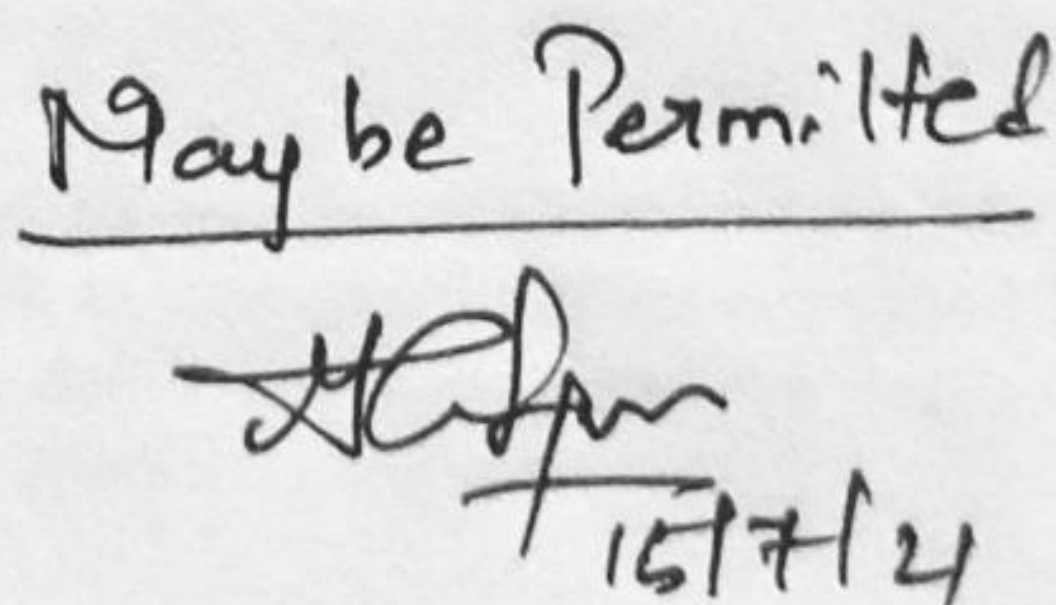 May be Permitted
15/7/21